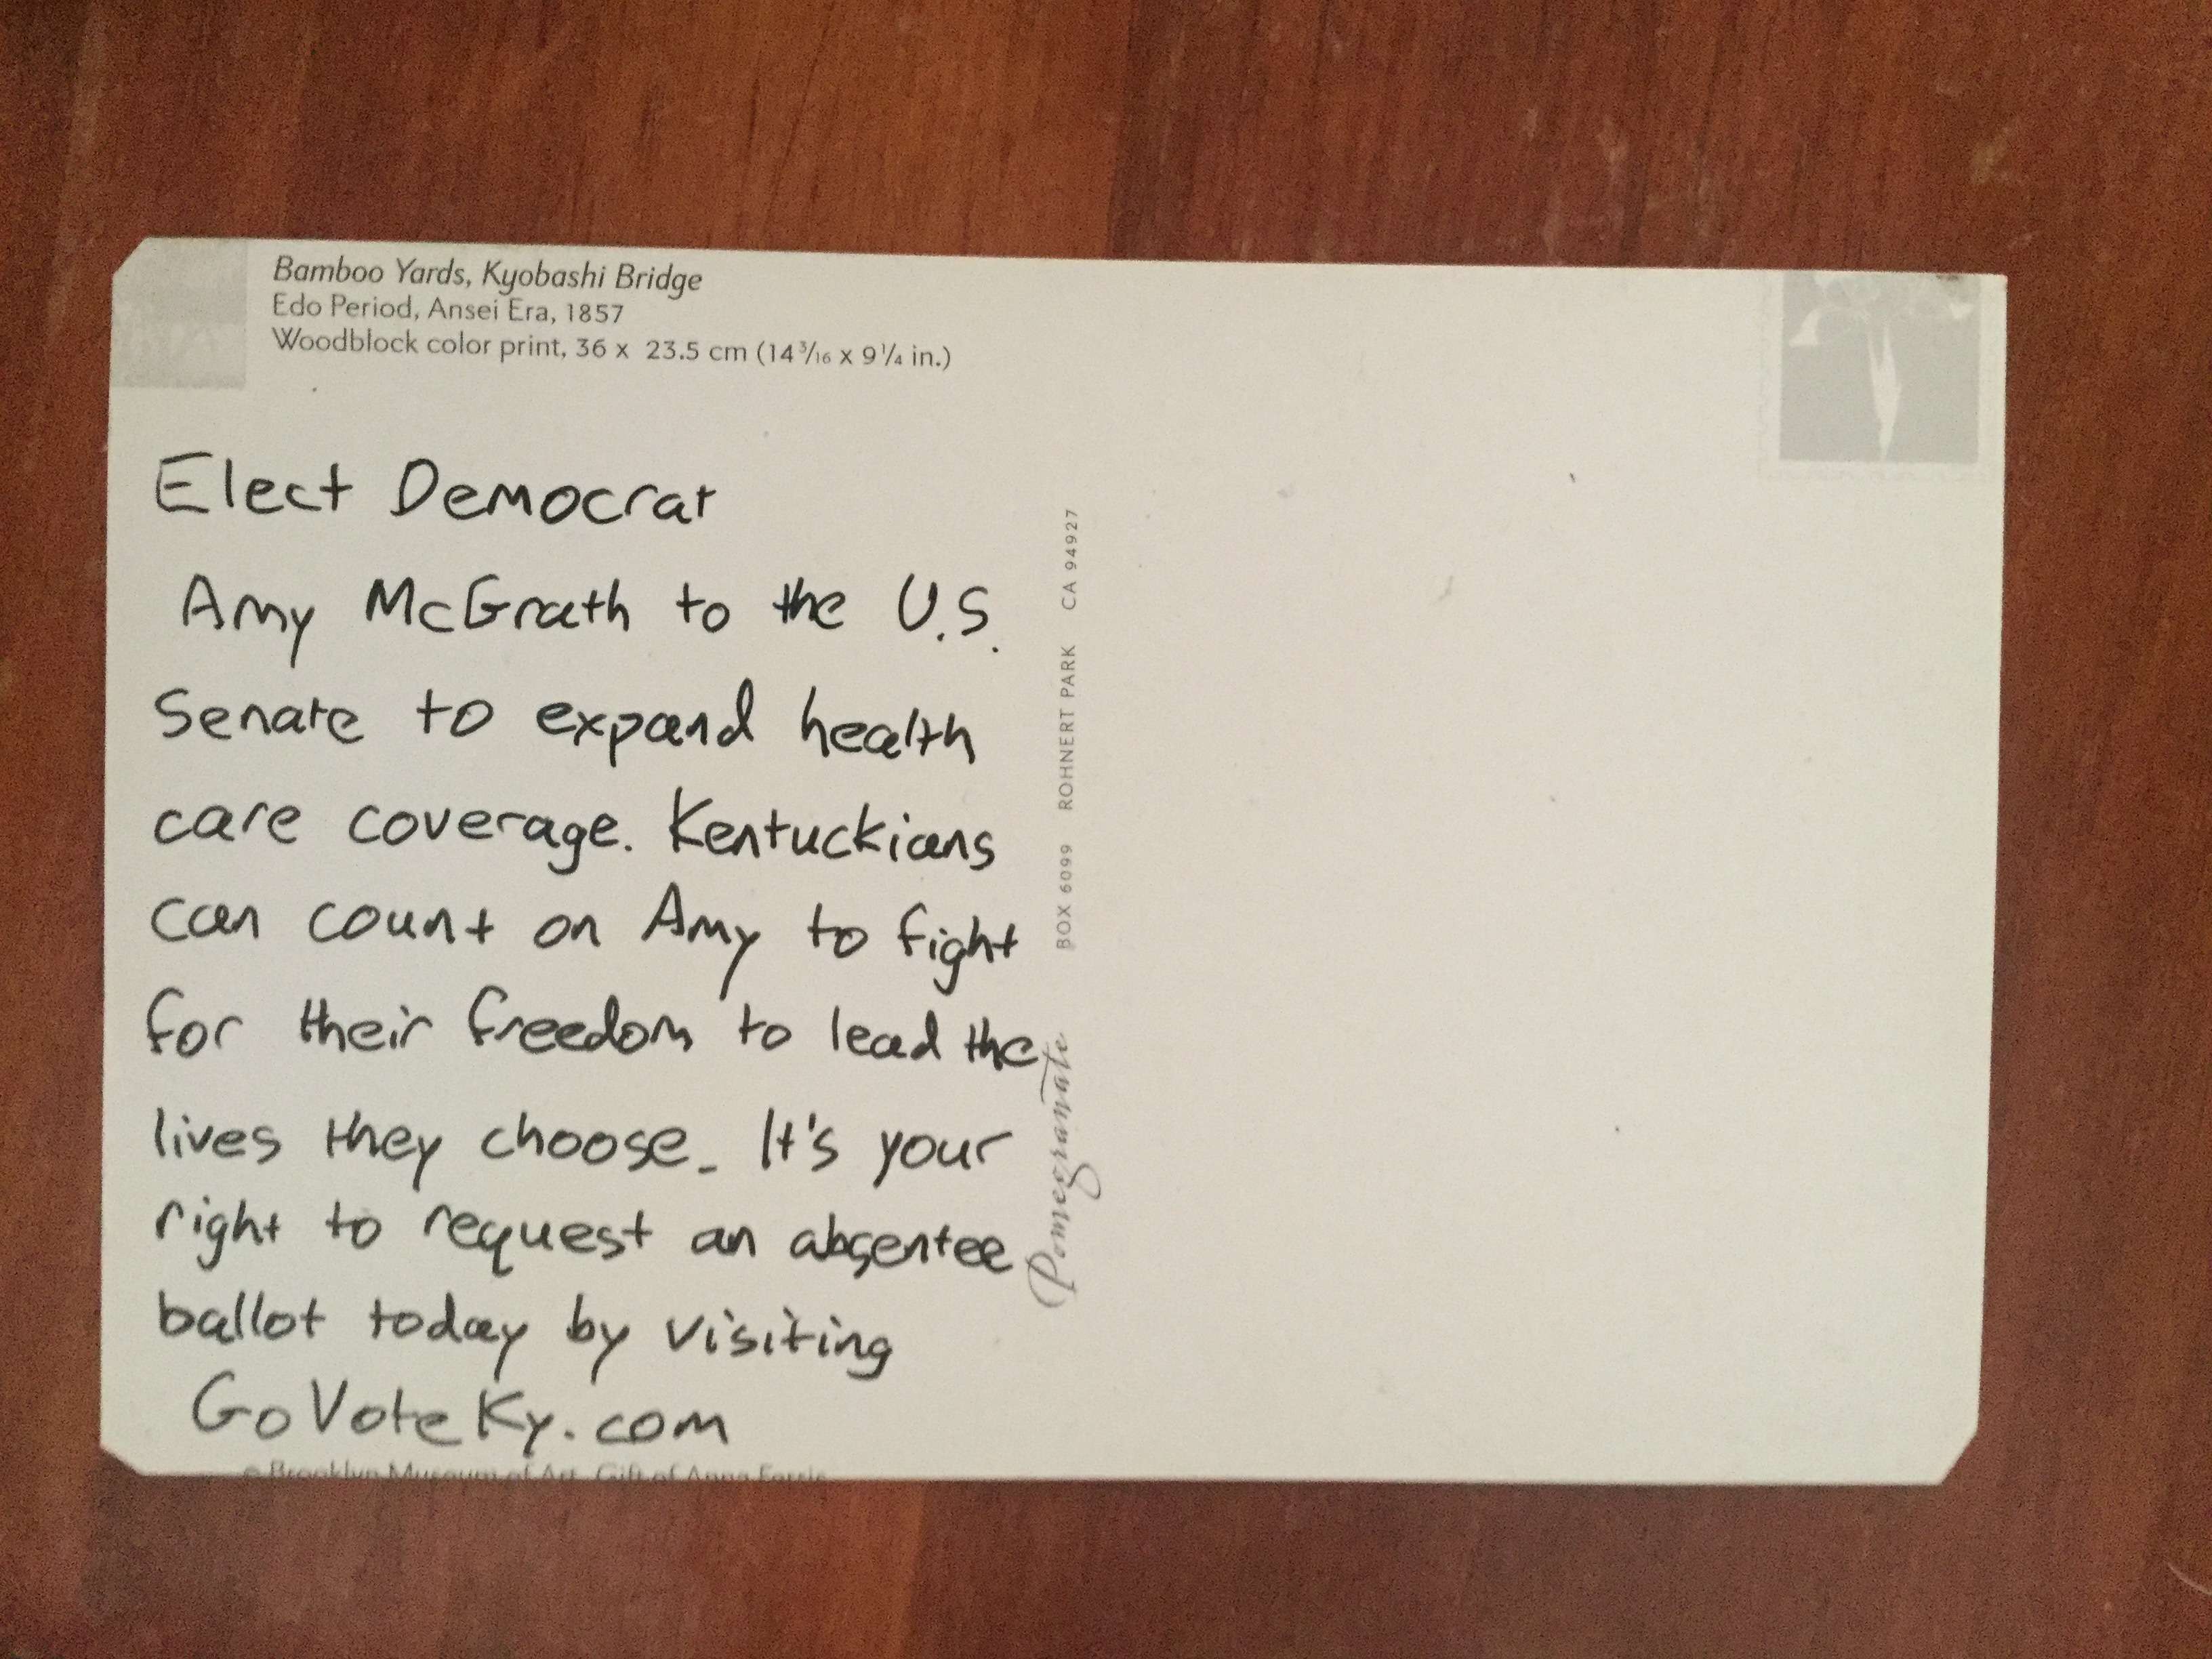 Bamboo Yards, Kyobashi Bridge
Edo Period, Ansei Era, 1857
Woodblock color print, 36 x 23.5 cm (14 3/16 x 9 1/4 in.)
Elect Democrat
Amy McGrath to the U.S.
Senate to expand health
care coverage. Kentuckians
can count on Amy to fight
for their freedom to lead the
lives they choose. It's your
right to request an absentee
ballot today by visiting
GoVoteKy.com
© Brooklyn Museum of Art, Gift of Anna Ferris
Pomegranate BOX 6099 ROHNERT PARK CA 94927